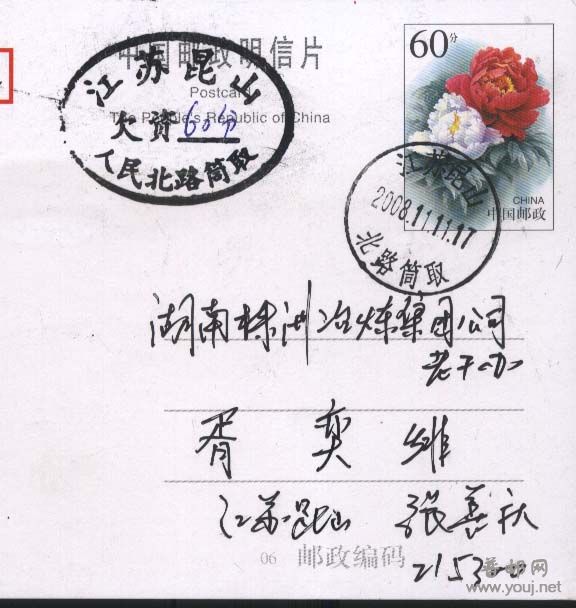 中国邮政明信片
Postcard
The People's Republic of China
江苏昆山
欠资 60分
人民北路筒取
60分
CHINA
中国邮政
江苏昆山
2008.11.11.17
北路筒取
湖南株洲冶炼集团公司
老干办
胥奕维
江苏昆山 张善庆
215300
06 邮政编码
www.youj.net